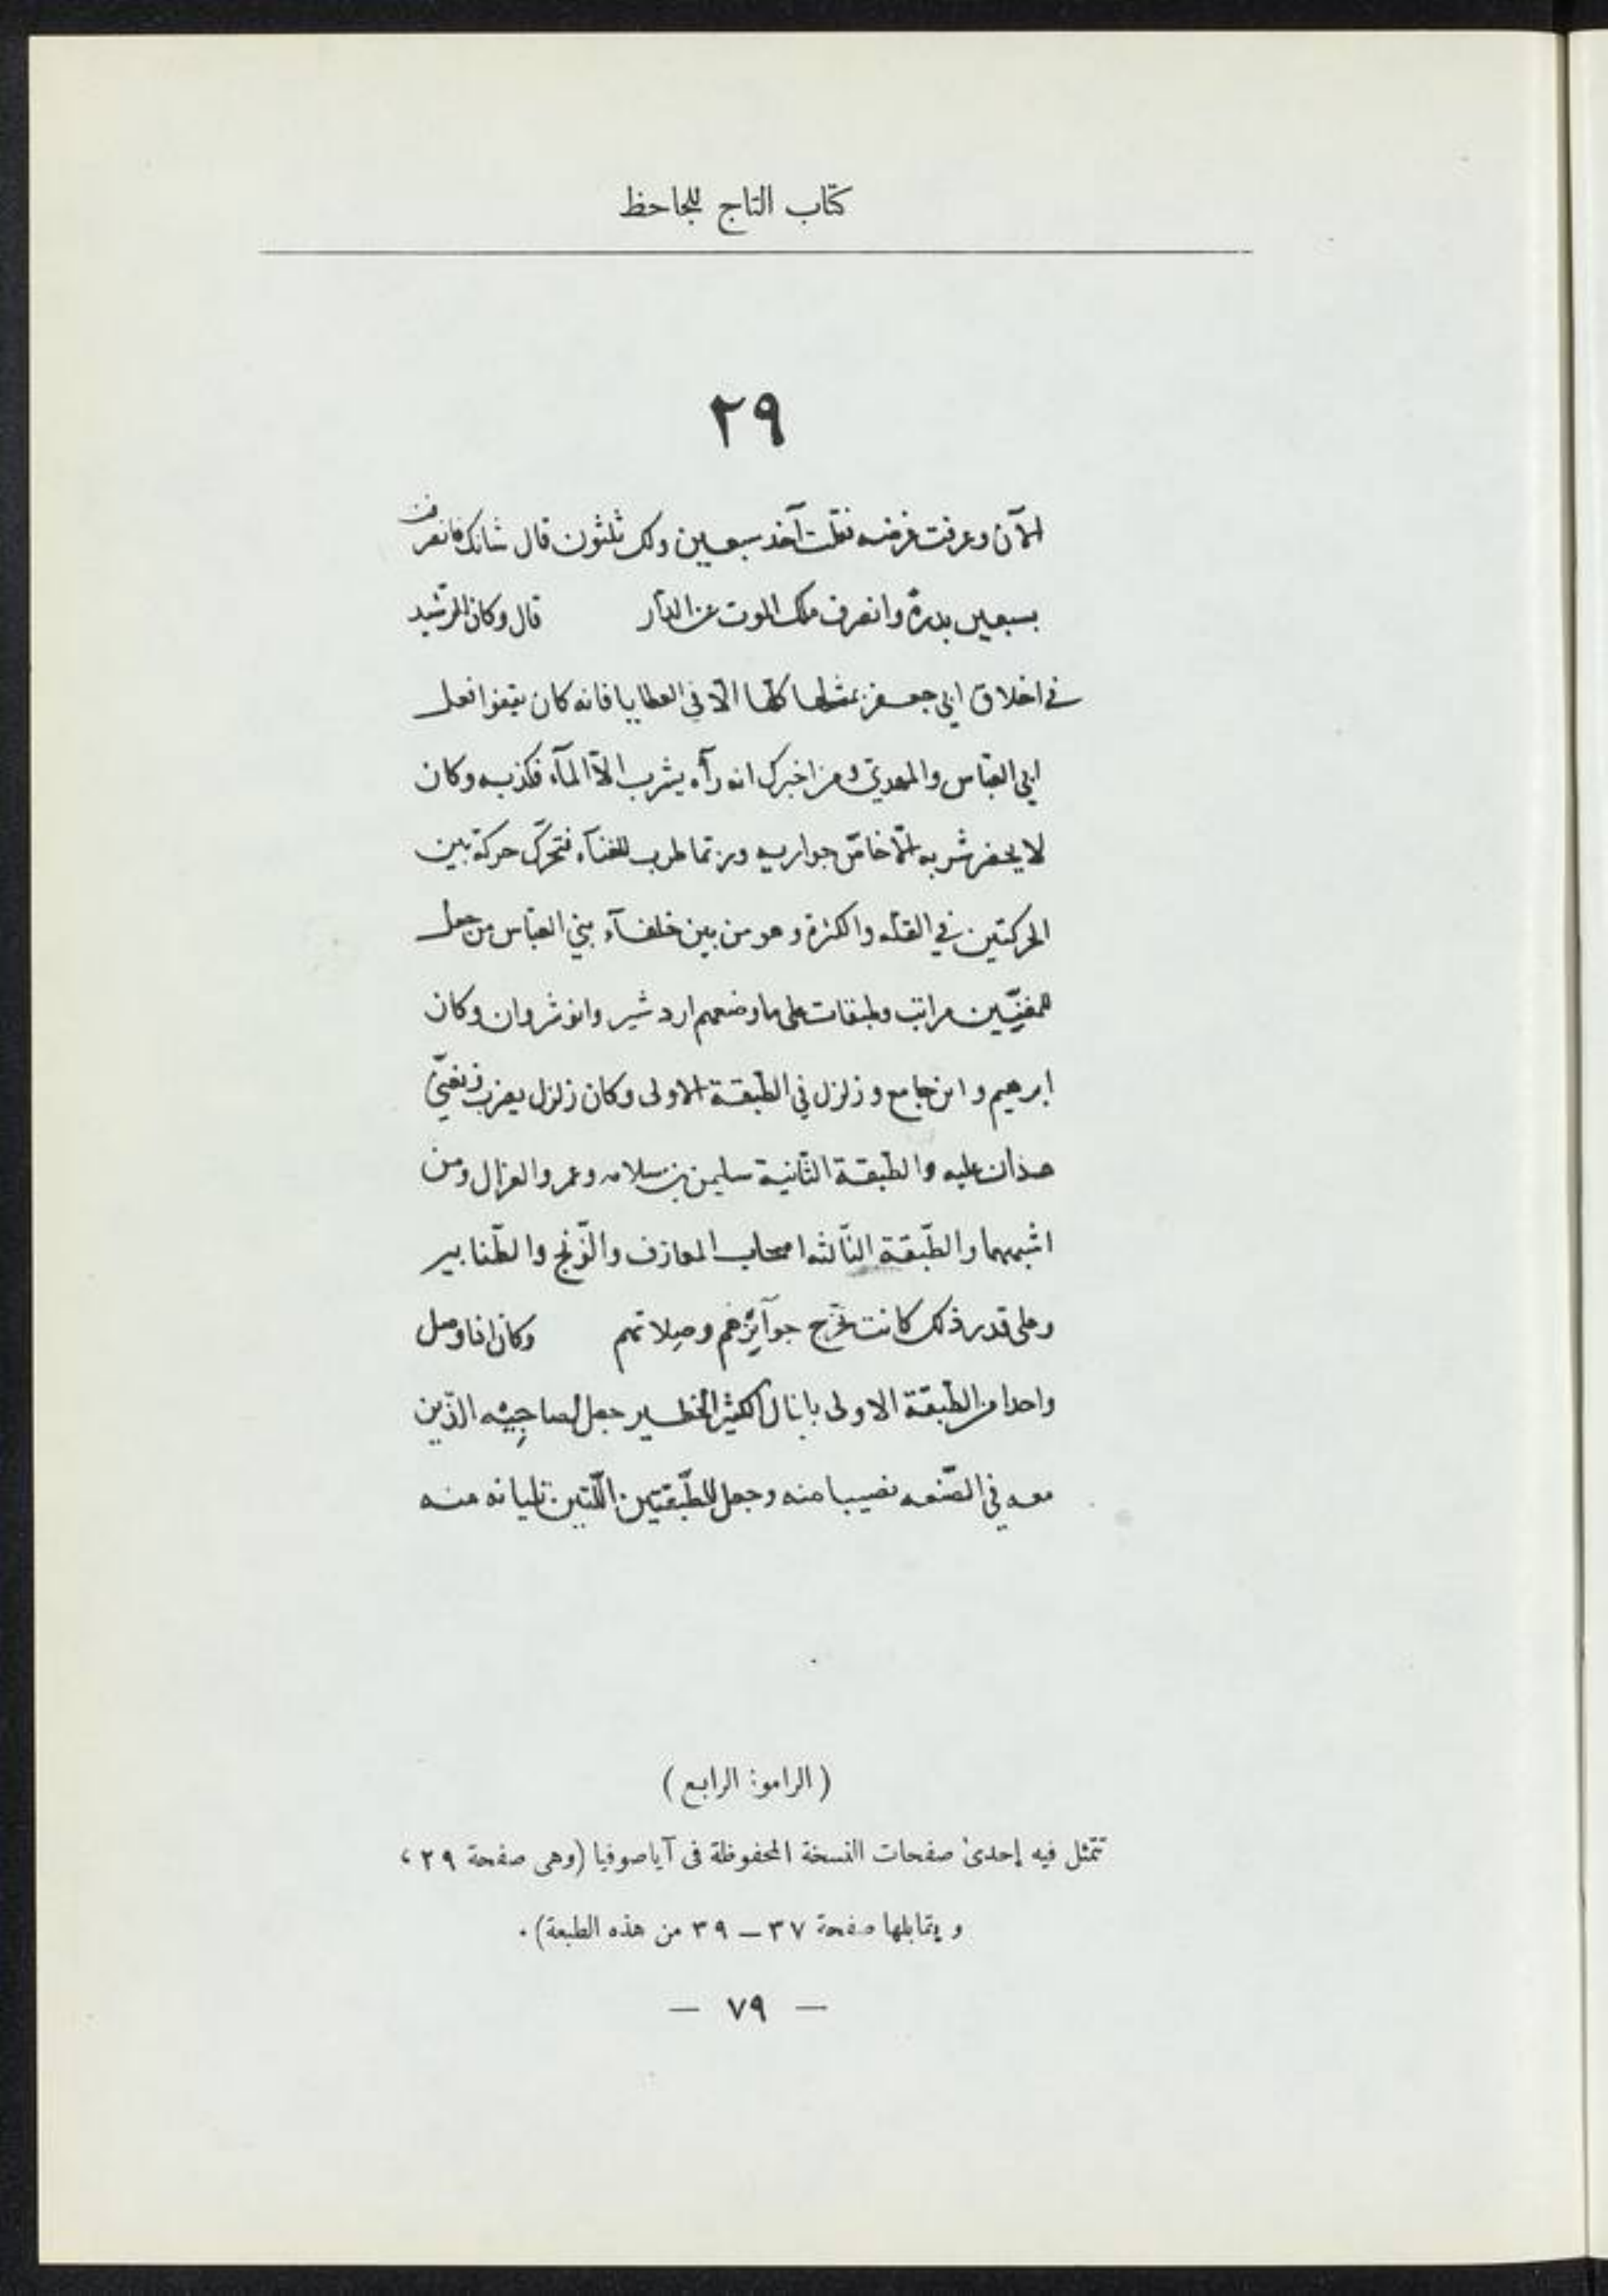 كتاب التاج للجاحظ
٢٩
الآن وعرفت غرضه فقلت آخذ سبعين ولك ثلثون قال شانك فانصرف
بسبعين بدرة وانصرف ملك الموت عن الدار قال وكان الرشيد
في اخلاق ابي جعفر يمثلها كلها الا في العطايا فانه كان يقفوا فعل
ابي العباس والمهدي ومن اخبرك انه رآه يشرب الا المآء فكذبه وكان
لا يحضر شربه الا خاص جواريه وربما طرب للغنآء فتحرك حركة بين
الحركتين في القلة والكثرة وهو من بين خلفآء بني العباس من جعل
للمغنيين مراتب وطبقات على ما وضعهم اردشير وانوشروان وكان
ابرهيم وابن جامع وزلزل في الطبقة الاولى وكان زلزل يضرب ويغني
هذان عليه والطبقة الثانية سليمن بن سلامه وعمرو الغزال ومن
اشبههما والطبقة الثالثه اصحاب المعازف والونج والطنابير
وعلى قدر ذلك كانت تخرج جوآئزهم وصلاتهم وكان اذا وصل
واحدا من الطبقة الاولى بالمال الكثير الخطير جعل لصاحبيه الذين
معه في الصنعه نصيبا منه وجعل للطبقتين اللتين تليانه منه
(الراموز الرابع)
تتمثل فيه إحدى صفحات النسخة المحفوظة فى آياصوفيا (وهى صفحة ٢٩،
ويقابلها صفحة ٣٧ – ٣٩ من هذه الطبعة).
— ٧٩ —